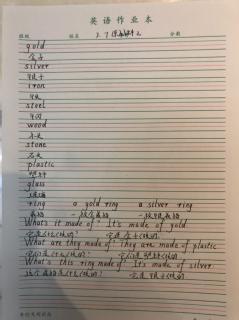 英语作业本
班级 姓名 2.7 分数
gold
金子
silver
银子
iron
铁
steel
钢
wood
木头
stone
石头
plastic
塑料
glass
玻璃
ring a gold ring a silver ring
戒指 一枚金戒指 一枚银戒指
What's it made of? It's made of gold.
它是什么做的? 它是金子做的.
What are they made of? They are made of plastic.
它们是什么做的? 它们是塑料做的.
What's this ring made of? It's made of silver.
这个戒指是什么做的? 它是银子做的.